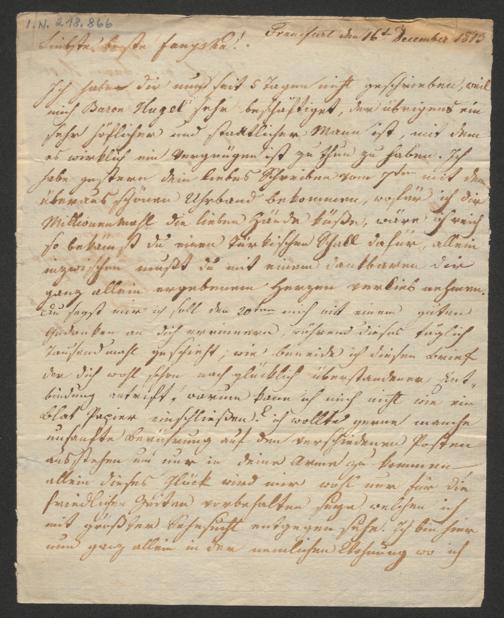 I.N. 218.866
Frankfurt den 16t December 1813
Liebste beste
Ich habe dir nun seit 5 Tagen nicht geschrieben, weil
mich Baron Hügel sehr beschäftiget, der übrigens ein
sehr höflicher und stattlicher Mann ist, mit dem
es wirklich ein Vergnügen ist zu thun zu haben. Ich
habe gestern dein liebes Schreiben vom 7ten mit dem
überaus schönen Uhrband bekommen, wofür ich dir
Millionenmahl die lieben Hände küße, wäre ich reich
so bekämst du einen Türkischen Schall dafür, allein
inzwischen mußt du mit einem dankbaren dir
ganz allein ergebenem Herzen vorlieb nehmen.
Du sagst mir ich soll den 20ten mich mit einem guten
Gedanken an dich erinnern, während dieses täglich
tausendmahl geschieht, wie beneide ich diesen Brief
der dich wohl schon nach glücklich überstandener Ent-
bindung antrift, warum kann ich mich nicht wie ein
Blat Papier einschließen? ich wollte gerne manche
unsanfte Berührung auf den verschiedenen Posten
ausstehen um nur in deine Arme zu kommen
allein dieses Glück wird mir wohl nur für die
friedlichen Zeiten vorbehalten seyn welchen ich
mit größter Sehnsucht entgegen sehe. Ich bin hier
nun ganz allein in der nemlichen Wohnung wo ich